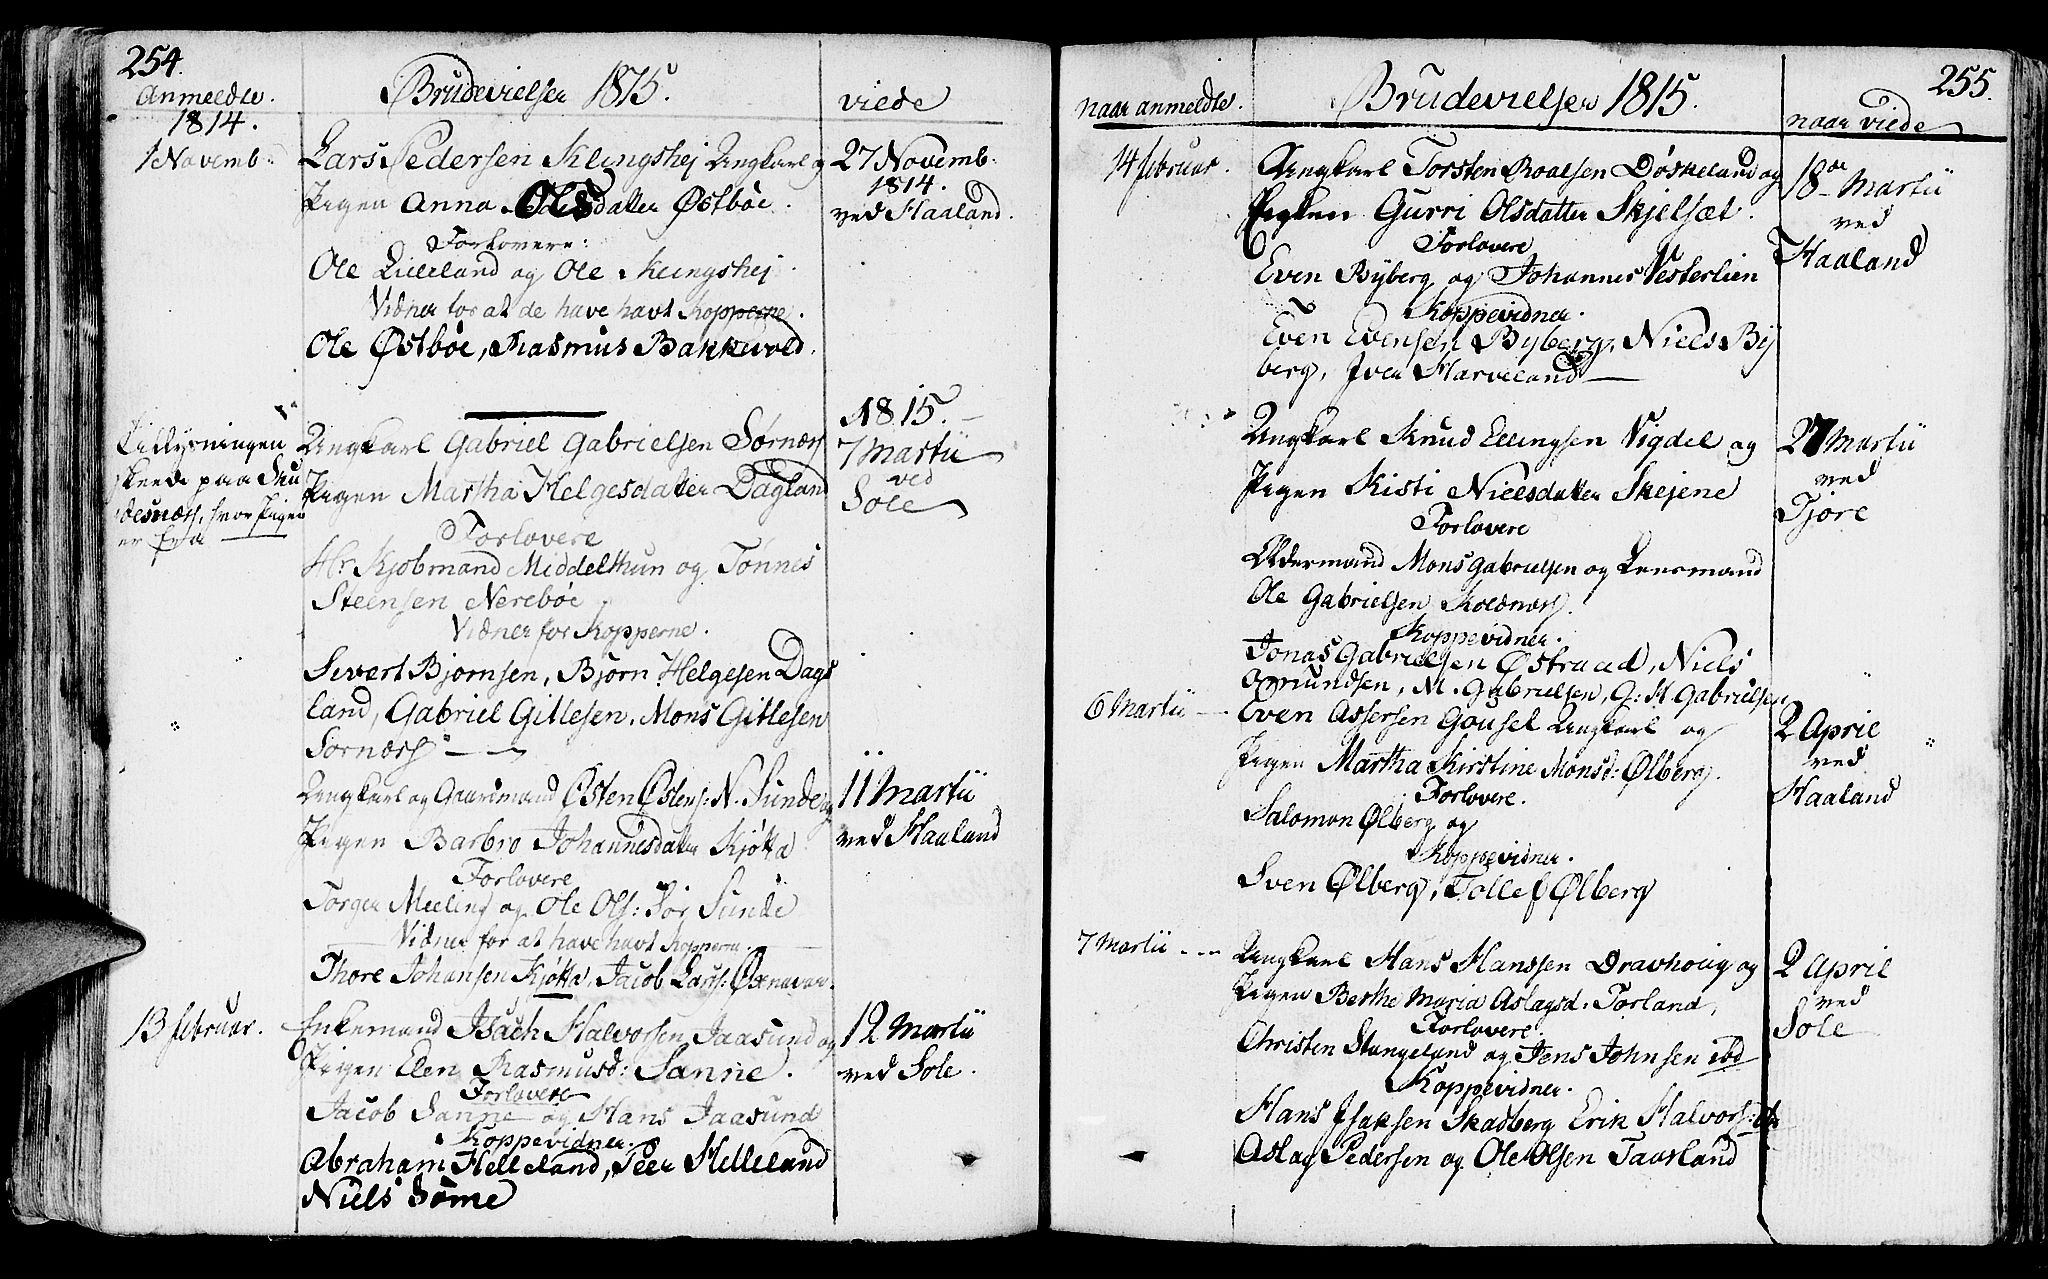 254.
Brudevielser 1815.
Anmeldte.
viede
1814.
1 Novemb:
Lars Pedersen Klingshej Ungkarl og
Pigen Anna Olsdatter Østböe.
27 Novemb:
1814.
ved Haaland.
Forlovere:
Ole Lilleland og Ole Klingshej.
Vidner for at de have havt Kopperne.
Ole Østböe, Rasmus Bakkevold.
1815.
Lillysningen
skeede paa Sku
desnæss, hvor Pigen
er fra
Ungkarl Gabriel Gabrielsen Sørnæss
Pigen Martha Helgesdatter Dagland
7 Martii
ved
Sole
Forlovere
Hr Kjöbmand Middelthun og Tønnes
Steensen Nereböe
Vidner for Kopperne.
Sivert Bjornsen, Bjørn Helgesen Dags
land, Gabriel Gitlesen, Mons Gitlesen
Sornæss
Ungkarl og Gaardmand Østen Østens: N. Sunde og
Pigen Barbro Johannisdatter Kjötta
11 Martii
ved Haaland
Forlovere
Torger Meeling og Ole Ols: Sör Sunde
Vidner for at have havt Kopperne.
Thore Johansen Kjötta, Jacob Lars: Øxnavar.
13 februar.
Enkemand Isach Halvorsen Jaasund og
Pigen Elen Rasmusd: Sanne.
12 Martii
ved Sole.
Forlovere
Jacob Sanne og Hans Jaasund
Koppevidner.
Abraham Helleland, Peer Helleland
Niels Söme
255.
naar anmeldte.
Brudevielser 1815.
naar viede
14 februar.
Ungkarl Torsten Roalsen Döskeland og
Pigen Gurri Olsdatter Skjelsæt.
18de Martii
ved
Haaland
Forlovere
Even Byberg og Johannes Vesterlien
Koppevidner.
Even Evensen Byberg, Niels By
berg, Iver Harveland
Ungkarl Knud Ellingsen Vigdel og
Pigen Kisti Nielsdatter Skejene
27 Martii
ved
Tjore
Forlovere
Oldermand Mons Gabrielsen og Lensmand
Ole Gabrielsen Kolnæss.
Koppevidner.
Jonas Gabrielsen Østraad, Niels
Omundsen, M. Gabrielsen, G: H. Gabrielsen
6 Martii
Even Assersen Gousel Ungkarl og
Pigen Martha Kirstine Monsd: Ølberg.
2 April
ved
Haaland
Forlovere.
Salomon Ølberg og
Koppevidner.
Sven Ølberg, Tollef Ølberg
7 Martii
Ungkarl Hans Hanssen Dravhoug og
Pigen Berthe Maria Aslagsd: Torland,
2 April
ved
Sole
Forlovere
Christen Stangeland og Jens Johnsen ibd
Koppevidner.
Hans Isaksen Skadberg Erik Halvors:
Aslag Pedersen og Ole Olsen Tausland